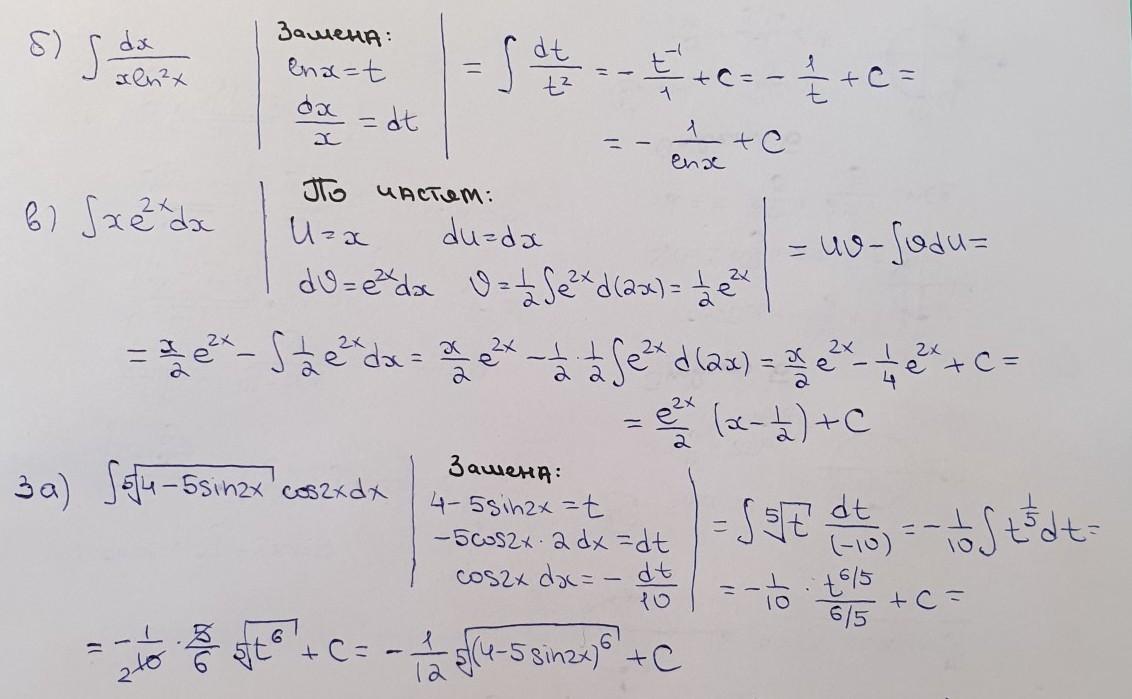 б) ∫ dx/(xln²x) | Замена: lnx=t dx/x = dt | = ∫ dt/t² = - t⁻¹/1 + C = - 1/t + C =
= - 1/lnx + C
в) ∫xe²ˣdx | По частям: U=x du=dx dϑ=e²ˣdx ϑ=1/2∫e²ˣd(2x)=1/2e²ˣ | = Uϑ-∫ϑdu=
= x/2e²ˣ - ∫1/2e²ˣdx = x/2e²ˣ - 1/2·1/2∫e²ˣd(2x) = x/2e²ˣ - 1/4e²ˣ + C =
= e²ˣ/2 (x-1/2) + C
3а) ∫⁵√(4-5sin2x) cos2xdx | Замена: 4-5sin2x=t -5cos2x·2dx=dt cos2xdx=-dt/10 | = ∫⁵√t dt/(-10) = -1/10∫t^(1/5)dt=
= -1/10 · t^(6/5)/(6/5) + C =
= -1/(2 10) · 5/6 ⁵√t⁶ + C = - 1/12 ⁵√(4-5sin2x)⁶ + C